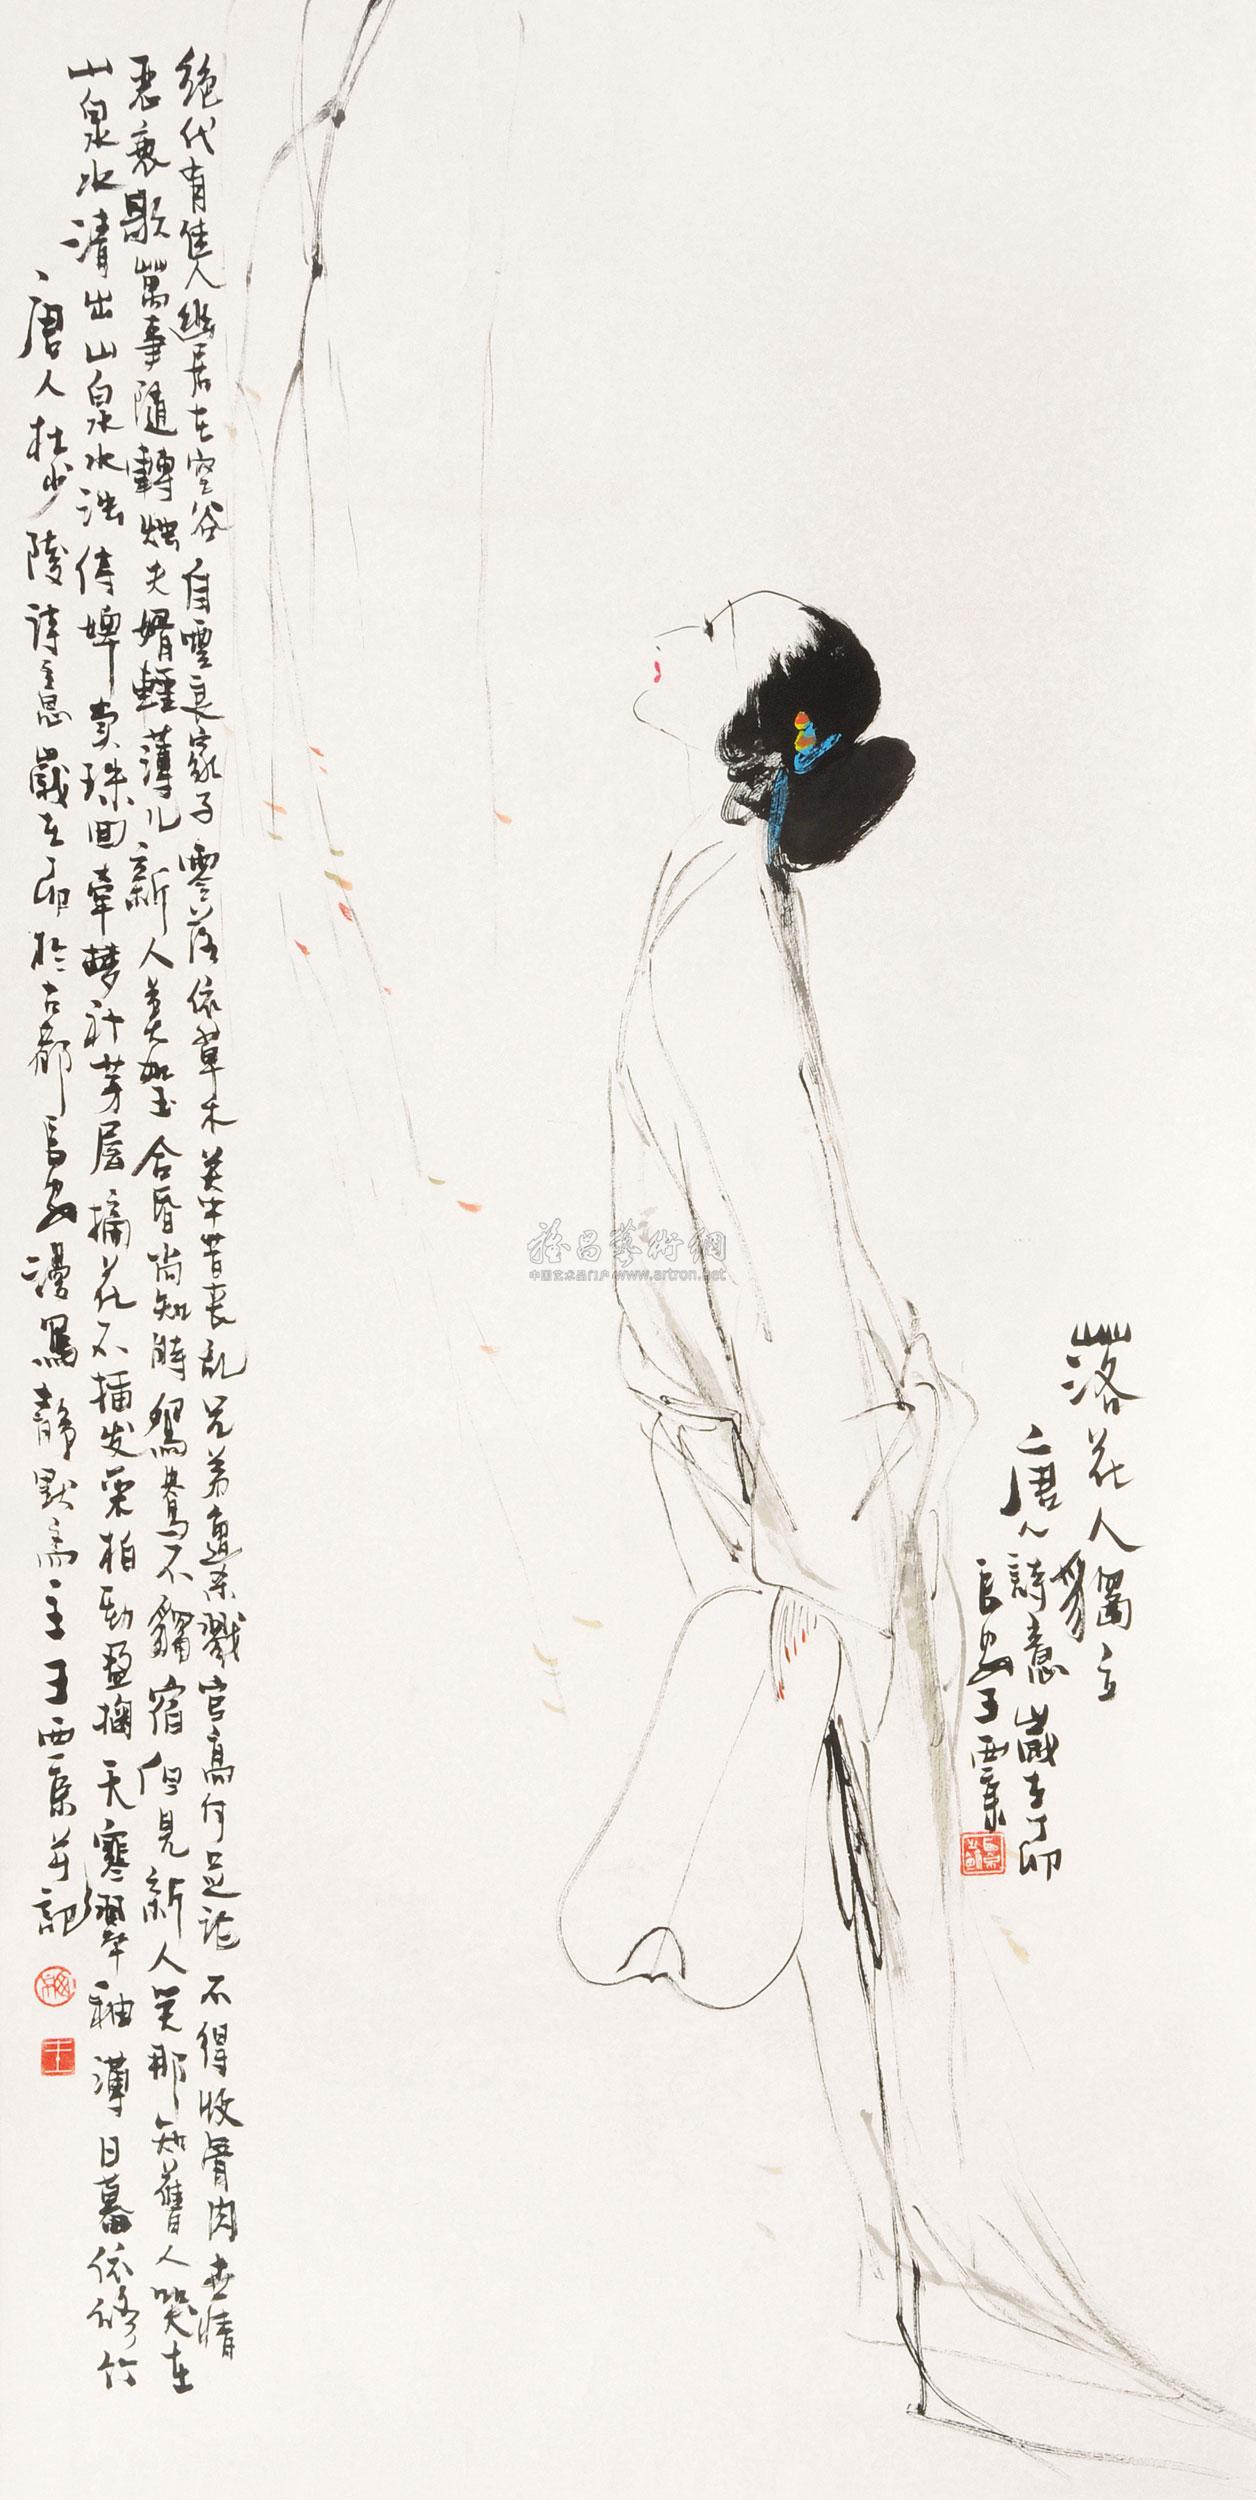 绝代有佳人幽居在空谷自云良家子零落依草木关中昔丧乱兄弟遭杀戮官高何足论不得收骨肉世情
恶衰歇萬事随轉烛夫婿輕薄儿新人美如玉合昏尚知時鴛鴦不獨宿但見新人笑那知舊人哭在
山泉水清出山泉水浊侍婢卖珠回牽夢补茅屋摘花不插发采柏動盈掬天寒翠袖薄日暮依修竹
唐人杜少陵诗意歲在卯於古都長安漫寫靜默斋主王西京并記
落花人獨立
唐人詩意歲在丁卯
長安王西京
雅昌藝術網
中国艺术品门户 www.artron.net